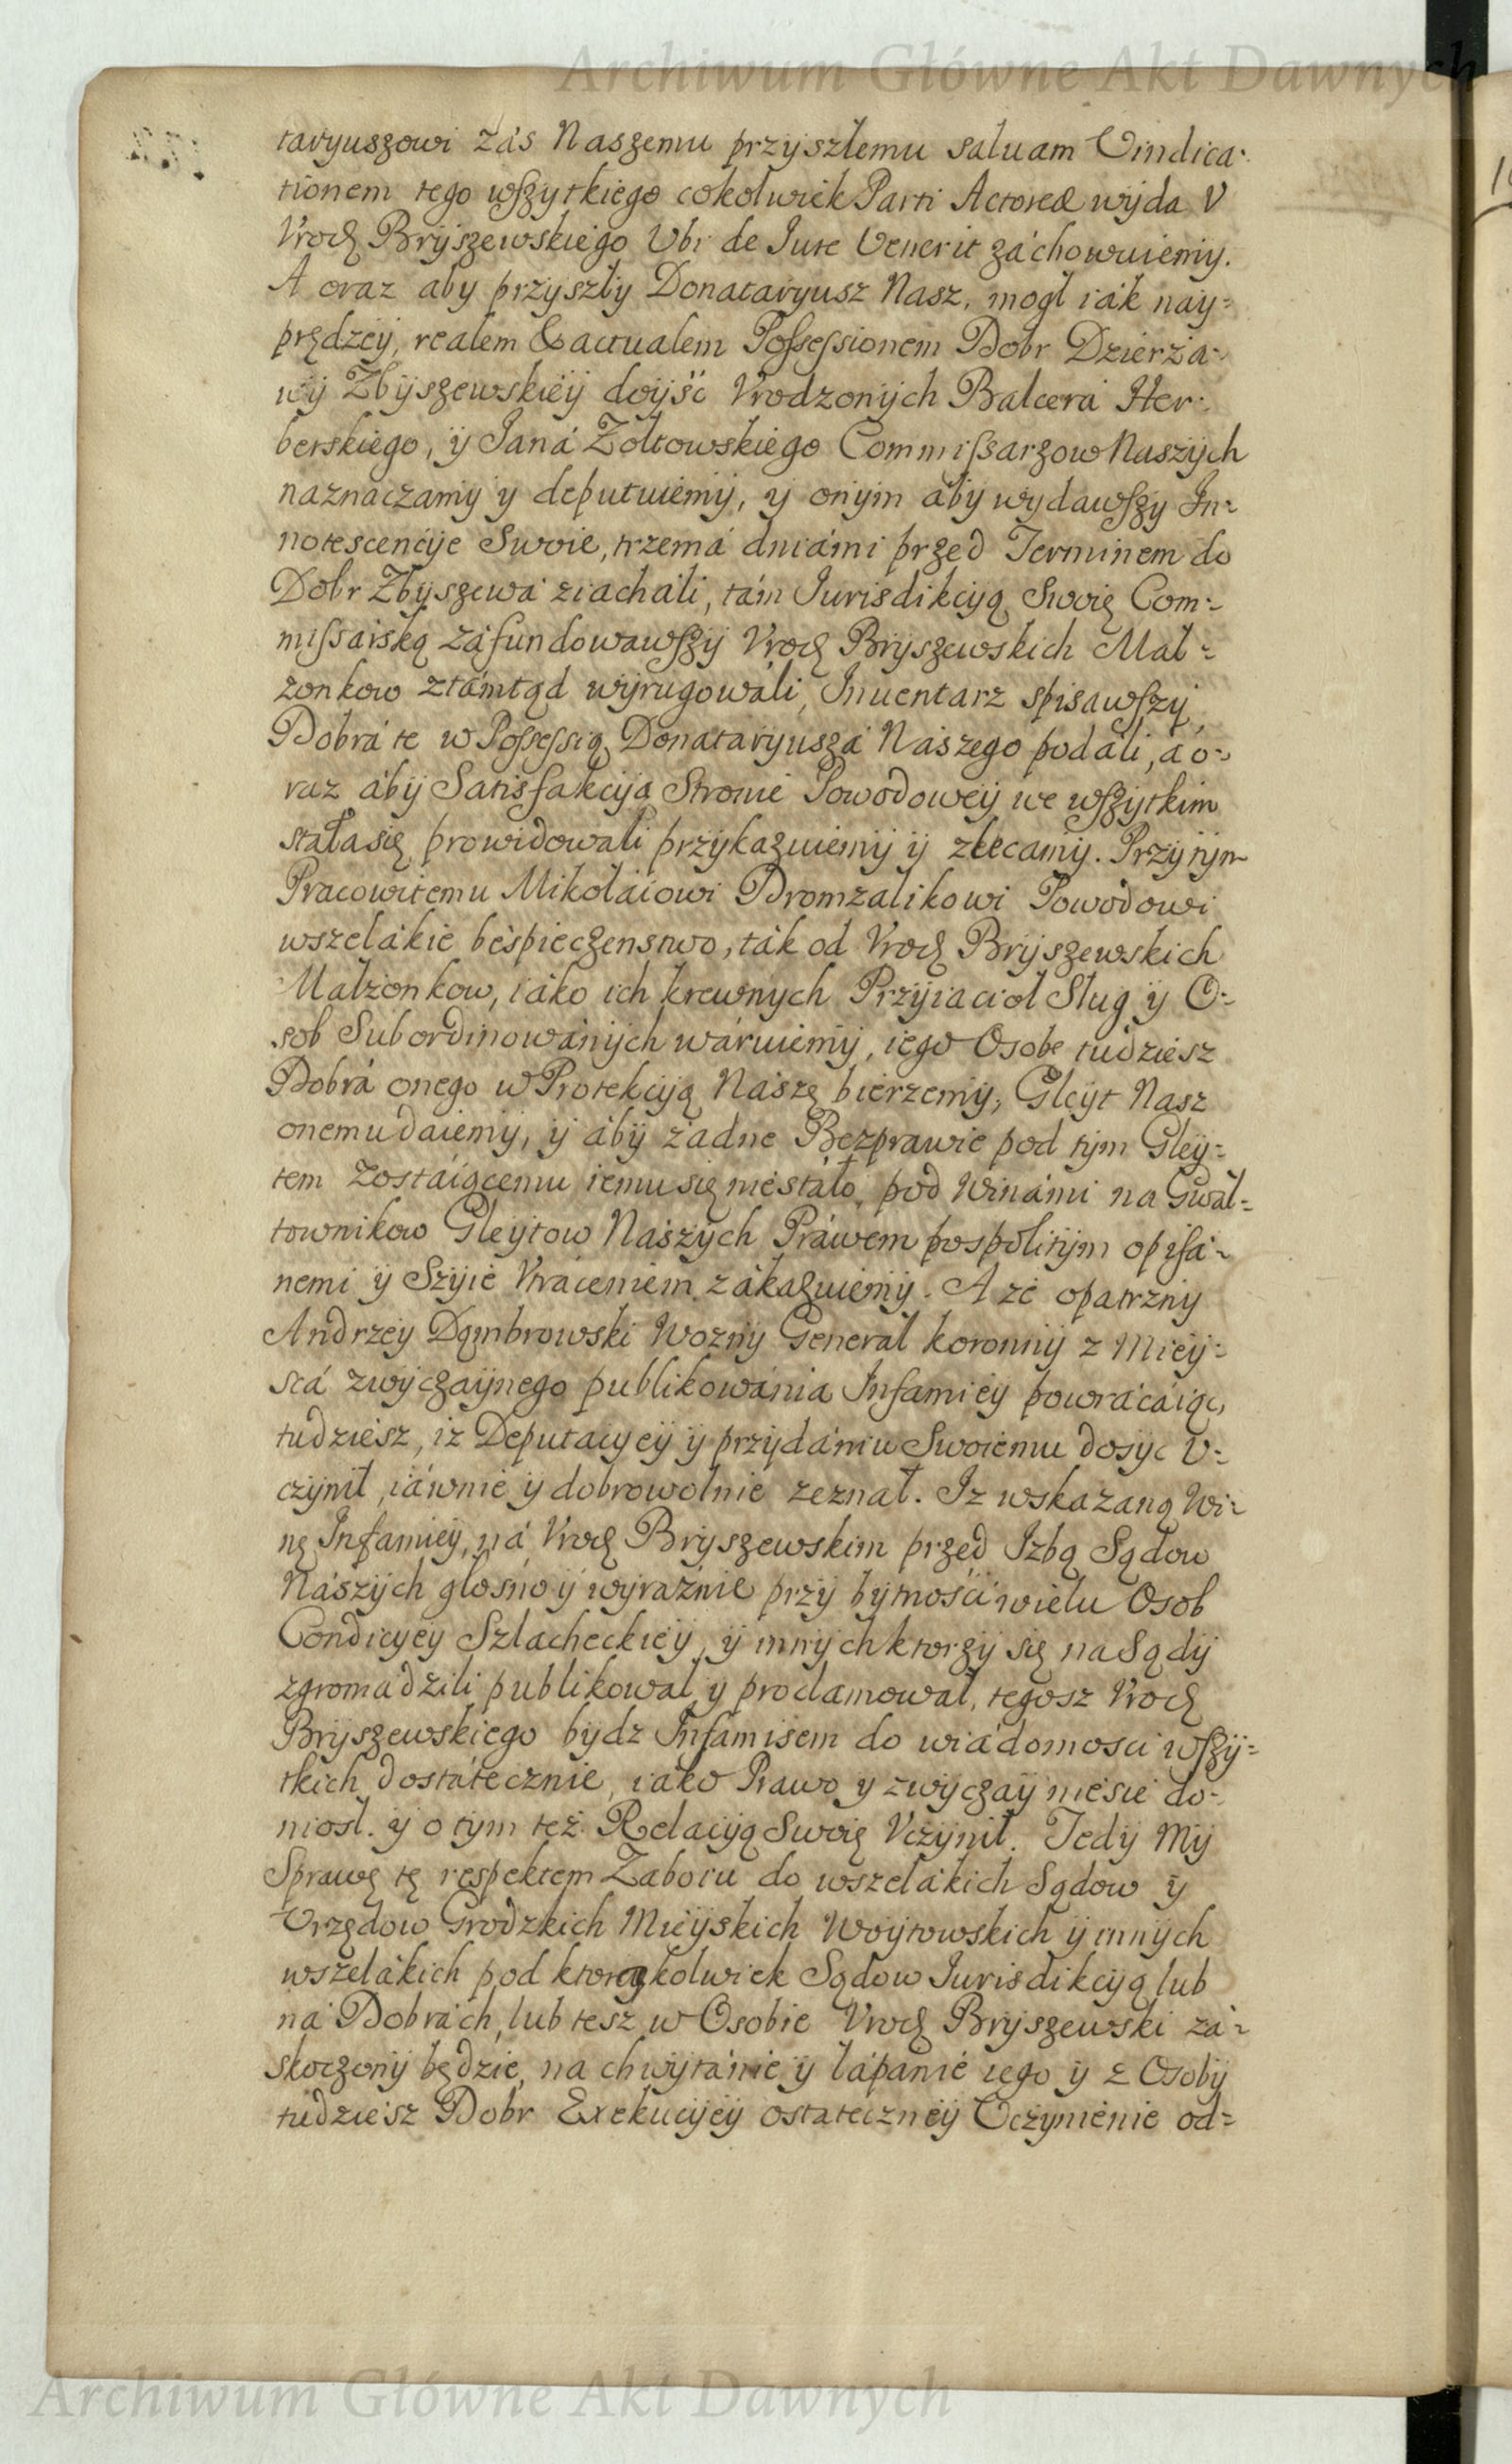 Archiwum Główne Akt Dawnych
taryuszowi zás Naszemu przyszłemu saluam Vindica-
tionem tego wszytkiego cokolwiek Parti Actoreæ wyda V
Vrodz Bryszewskiego Vbi de Iure Venerit záchowuiemy.
A oraz aby przyszły Donataryusz Nasz, mogł iák náy=
prędzey, realem & actualem Possessionem Dobr Dzierżá-
wy Zbyszewskiey doyść Vrodzonych Balcerá Her-
berskiego, y Janá Zołtowskiego Commissarzow Naszych
náznaczamy y deputuiemy, y onym áby wydawszy In-
notescencye Swoie, trzemá dniámi przed Terminem do
Dobr Zbyszewá ziacháli, tám Iurisdikcyą Swoię Com-
missárską záfundowawszy Vrodz Bryszewskich Mał-
żonkow ztámtąd wyrugowáli, Inuentarz spisawszy,
Dobrá te w Possessią Donataryuszá Nászego podáli, á o-
raz áby Satisfakcya Stronie Powodowey we wszytkim
stáłasię prowidowali przykazuiemy y zlecamy. Przytym
Pracowitemu Mikołáiowi Dromzalikowi Powodowi
wszelákie bespieczenstwo, ták od Vrodz Bryszewskich
Małżonkow, iáko ich krewnych Przyiacioł Sług y O-
sob Subordinowánych wáruiemy, iego Osobę tudziesz
Dobrá onego w Protekcyą Nászę bierzemy, Gleyt Nasz
onemu daiemy, y áby żadne Bezprawie pod tym Gley-
tem zostáiącemu iemu się niestáło, pod Winámi na Gwał=
townikow Gleytow Nászych Práwem pospolitym opisá-
nemi y Szyie Vtráceniem zákazuiemy. A że opatrzny
Andrzey Dąmbrowski Wozny Generał koronny z Miey-
scá zwyczáynego publikowánia Infamiey powrácáiąc,
tudziesz, iż Deputacyey y przydániu Swoiemu dosyc V-
czynił, iáwnie y dobrowolnie zeznał. Iż wskazaną Wi-
nę Infamiey, ná Vrodz Bryszewskim przed Izbą Sądow
Nászych głosno y wyraznie przy bytnosci wielu Osob
Condicyey Szlacheckiey, y innych ktorzy się na Sądy
zgromadzili publikował y proclamował, tegosz Vrodz
Bryszewskiego bydz Infamisem do wiádomosci wszy=
tkich dostátecznie, iáko Prawo y zwyczay niesie do-
niosł. y o tym też Relacyą Swoię Vczynił. Tedy My
Sprawę tę respektem Zaboiu do wszelákich Sądow y
Vrzędow Grodzkich Mieyskich Woytowskich y innych
wszelákich pod ktorąkolwiek Sądow Iurisdikcyą lub
ná Dobrách, lub tesz w Osobie Vrodz Bryszewski zá-
skoczony będzie, na chwytánie y łápanie iego y z Osoby
tudziesz Dobr Exekucyey ostateczney Vczynienie od=
Archiwum Główne Akt Dawnych